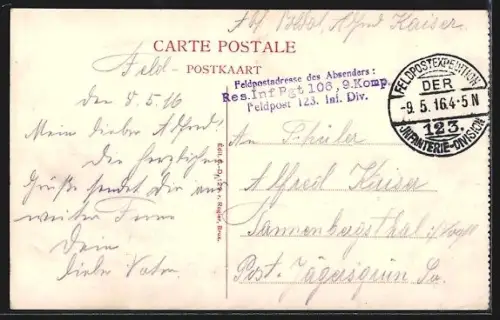 Alfred Kaiser.
CARTE POSTALE
Feld-
POSTKAART
Feldpostadresse des Absenders:
Res. Inf Rgt 106, 9. Komp.
Feldpost 123. Inf. Div.
FELDPOSTEXPEDITION
DER
-9.5.16.4-5N
123.
INFANTERIE-DIVISION
den 8.5.16
Mein lieber Alfred!
Die herzlichen
Grüße sendet dir aus
weiter Ferne
Dein
lieber Vater.
An Schüler
Alfred Kaiser
Tannenbergsthal i/Vogtl
Post. Jägersgrün Sa.